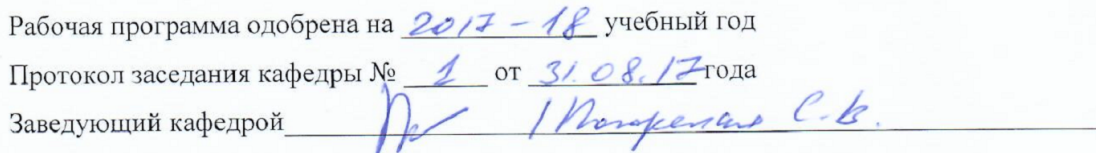 Рабочая программа одобрена на 2017 – 18 учебный год
Протокол заседания кафедры № 1 от 31.08.17 года
Заведующий кафедрой / С.В.